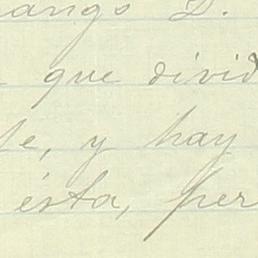 ango D.
que divid
te, y hay
ésta, per